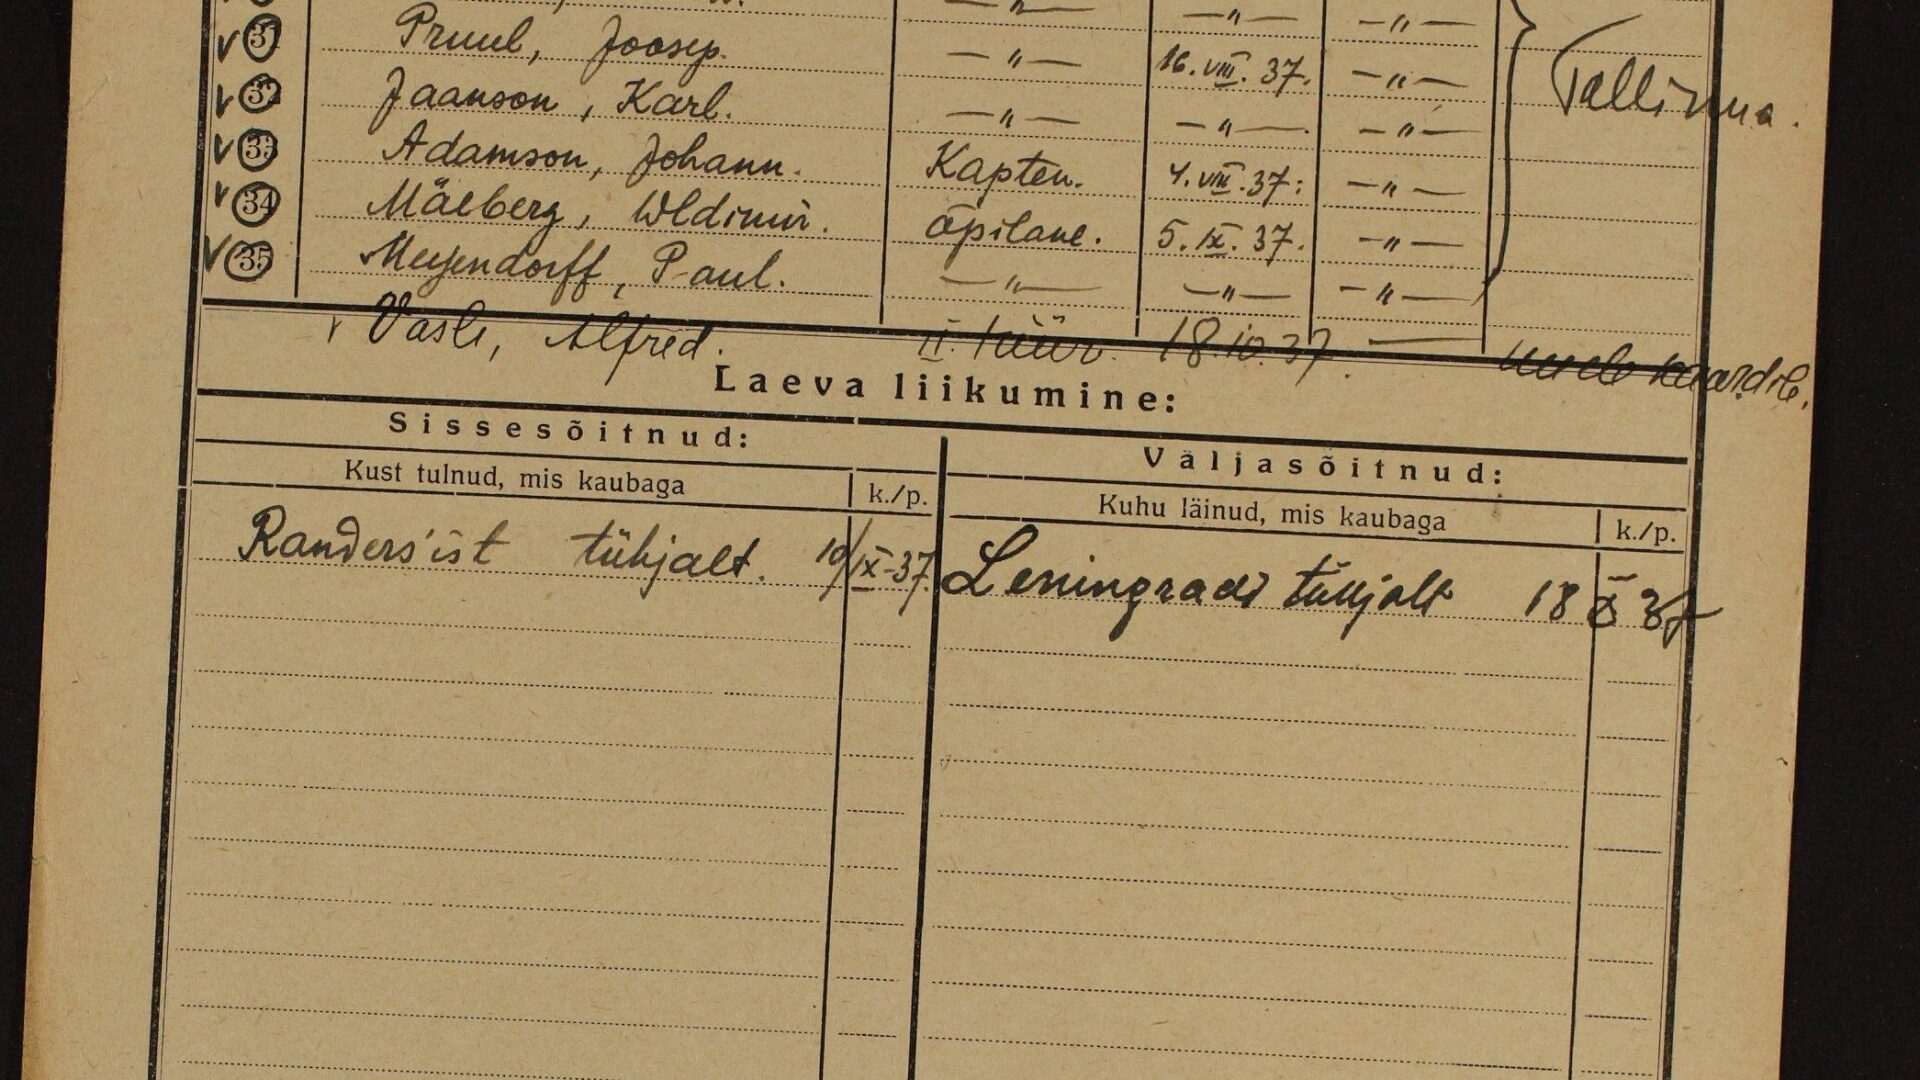 31 Pruul, Joosep. —"— 16. VIII. 37. —"—
Tallinna.
32 Jaanson, Karl. —"— —"— —"—
33 Adamson, Johann. Kapten. 4. VIII. 37. —"—
34 Mäeberg, Wldimir. õpilane. 5. IX. 37. —"—
35 Meyendorff, Paul. —"— —"— —"—
Vasli, Alfred. II. tüür. 18.10.37. — uuele kaardile.
Laeva liikumine:
Sissesõitnud:
Väljasõitnud:
Kust tulnud, mis kaubaga k./p.
Kuhu läinud, mis kaubaga k./p.
Randers'ist tühjalt. 10/IX-37.
Leningradi tühjalt 18 X 37